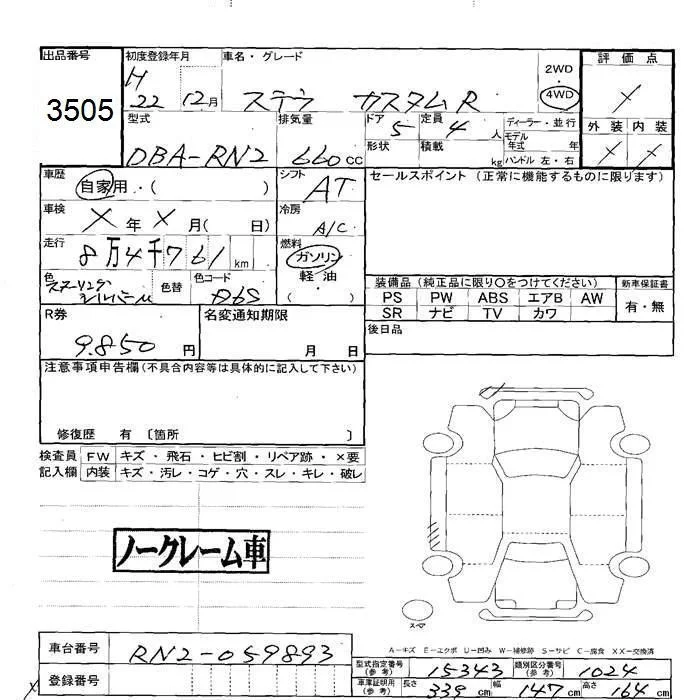 出品番号 初度登録年月 車名・グレード 2WD 評価点
3505 H22 12月 ステラ カスタムR 4WD ×
型式 排気量 ドア 5 定員 4人 ディーラー・並行 外装 内装
DBA-RN2 660cc 形状 積載 kg モデル年式 年 × ×
ハンドル 左・右
車歴 自家用・( ) シフト AT セールスポイント(正常に機能するものに限ります)
車検 × 年 × 月( 日) 冷房 A/C
走行 8万4千761km 燃料 ガソリン
軽油
( )
色 色替 色コード D6S 装備品(純正品に限り〇をつけてください) 新車保証書
PS PW ABS エアB AW 有・無
SR ナビ TV カワ
R券 名変通知期限 後日品
9.850円 月 日
注意事項申告欄(不具合内容等は具体的に記入して下さい)
修復歴 有 〔箇所 〕
検査員 FW キズ・飛石・ヒビ割・リペア跡・×要
記入欄 内装 キズ・汚レ・コゲ・穴・スレ・キレ・破レ
ノークレーム車
スペア
A-キズ E-エクボ U-凹み W-補修跡 S-サビ C-腐食 XX-交換済
車台番号 RN2-059893
型式指定番号(参考) 15343 類別区分番号(参考) 1024
登録番号
車庫証明用(参考) 長さ 339cm 幅 147cm 高さ 164cm